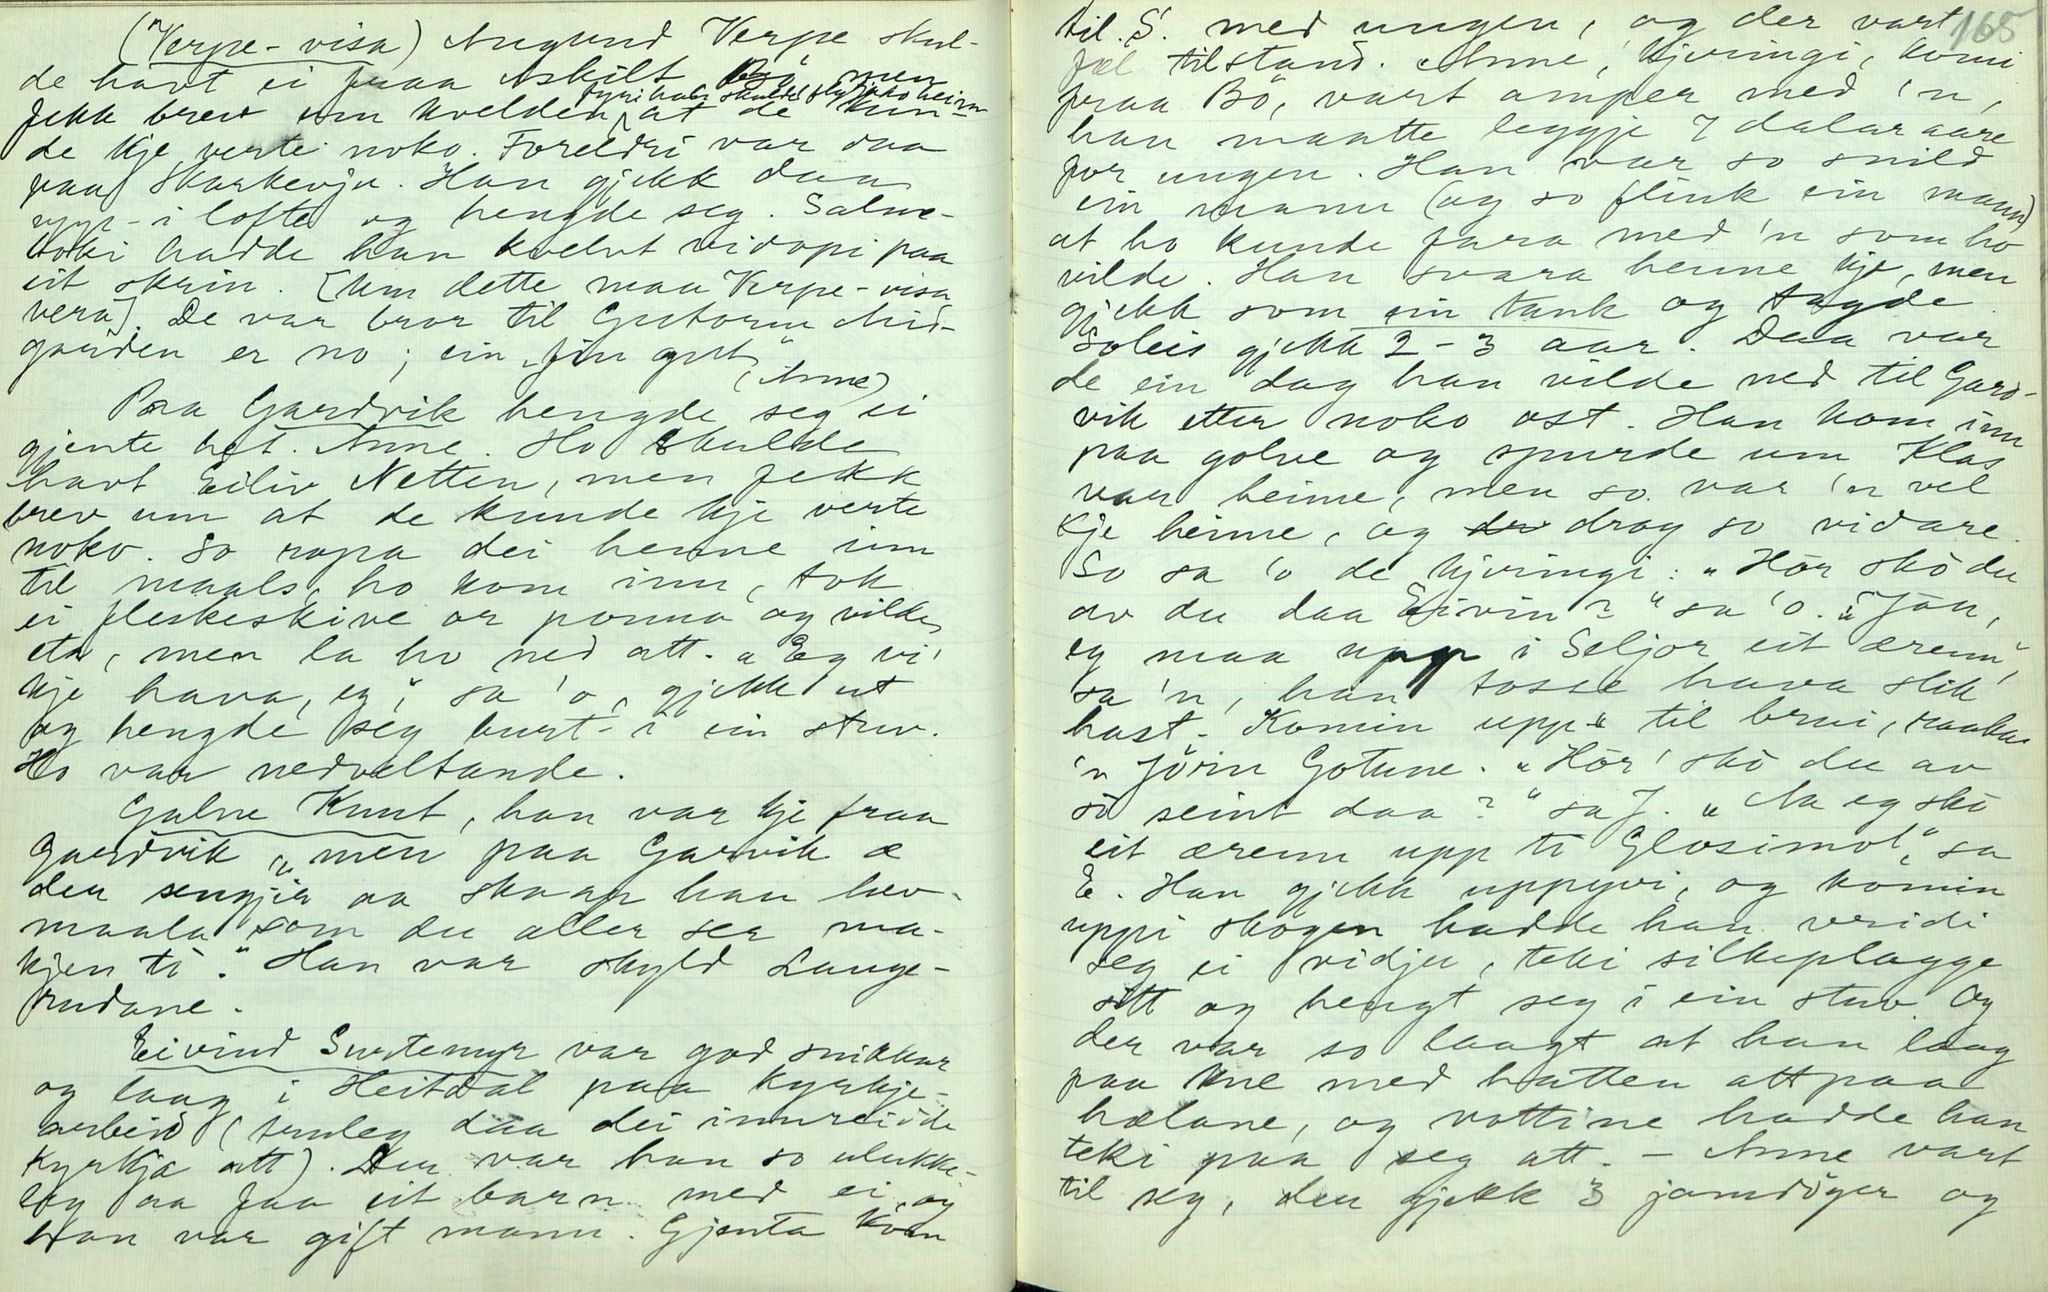 (Verpe-visa) Augund Verpe skul-
de havt ei fraa Askilt Bø men
fyri han skulde fly joko heim
fekk brev um kvelden, at de kun-
de kje verte noko. Foreldri var daa
paa Skarkevju. Han gjekk daa
upp-i lofte og hengde seg. Salme-
boki hadde han kvelvt vidopi paa
eit skrin. [Um dette maa Verpe-visa
vera]. De var bror til Gutorm Mid-
garden er no; ein "fin gut"
(Anne)
Paa Gardvik hengde seg ei
gjente het. Anne. Ho skulde
havt Eiliv Netten, men fekk
brev um at de kunde kje verte
noko. So ropa dei henne inn
til maals, ho kom inn, tok
ei fleskeskive or ponna og vilde
eta, men la ho ned att. "Eg vi'
kje hava, eg", sa 'o, gjekk ut
og hengde seg burt-i ein stuv.
Ho var nedveltande.
Galne Knut, han var kje fraa
Gardvik, "men paa Garvik æ
der sengjir aa skaap han hev
maala som du aller ser ma-
kjen ti." Han var skyld Lauge-
rudane.
Eivind Surtemyr var god snikkar
og laag i Heitdal paa kyrkje-
arbeid (truleg daa dei innreidde
kyrkja att). Der var han so ulukke-
leg aa faa eit barn med ei, og
han var gift mann. Gjenta kom
165
til S. med ungen, og der vart
fæl tilstand. Anne, kjeringi, komi
fraa Bø, vart amper med 'n,
han maatte leggje 7 dalar aare
for ungen. Han var so snild
ein mann (og so flink ein mann)
at ho kunde fara med 'n som ho
vilde. Han svara henne kje, men
gjekk som ein tank og tagde.
Soleis gjekk 2-3 aar. Daa var
de ein dag han vilde ned til Gard-
vik etter noko ost. Han kom inn
paa golve og spurde um Klas
var heime, men so var 'n vel
kje heime, og drog so vidare.
So sa 'o de kjeringi: "Hør skò du
av du daa Eivin?" sa 'o. "Jau,
eg maa upp i Seljor eit ærenn",
sa 'n, han tosse hava slik
hast. Komin upp til brui, raaka
'n Jørn Gotune. "Hør' skò du av
sò seint daa?" sa J. "Aa eg skò
eit ærenn upp ti Glosimot", sa
E. Han gjekk uppyvi, og komin
uppi skogen hadde han vridi
seg ei vidju, teki silkeplagge
sitt og hengt seg i ein stuv. Og
der var so laagt at han laag
paa kne med hatten attpaa
hælane, og vottine hadde han
teki paa seg att. - Anne vart
til seg, der gjekk 3 jamdøger og